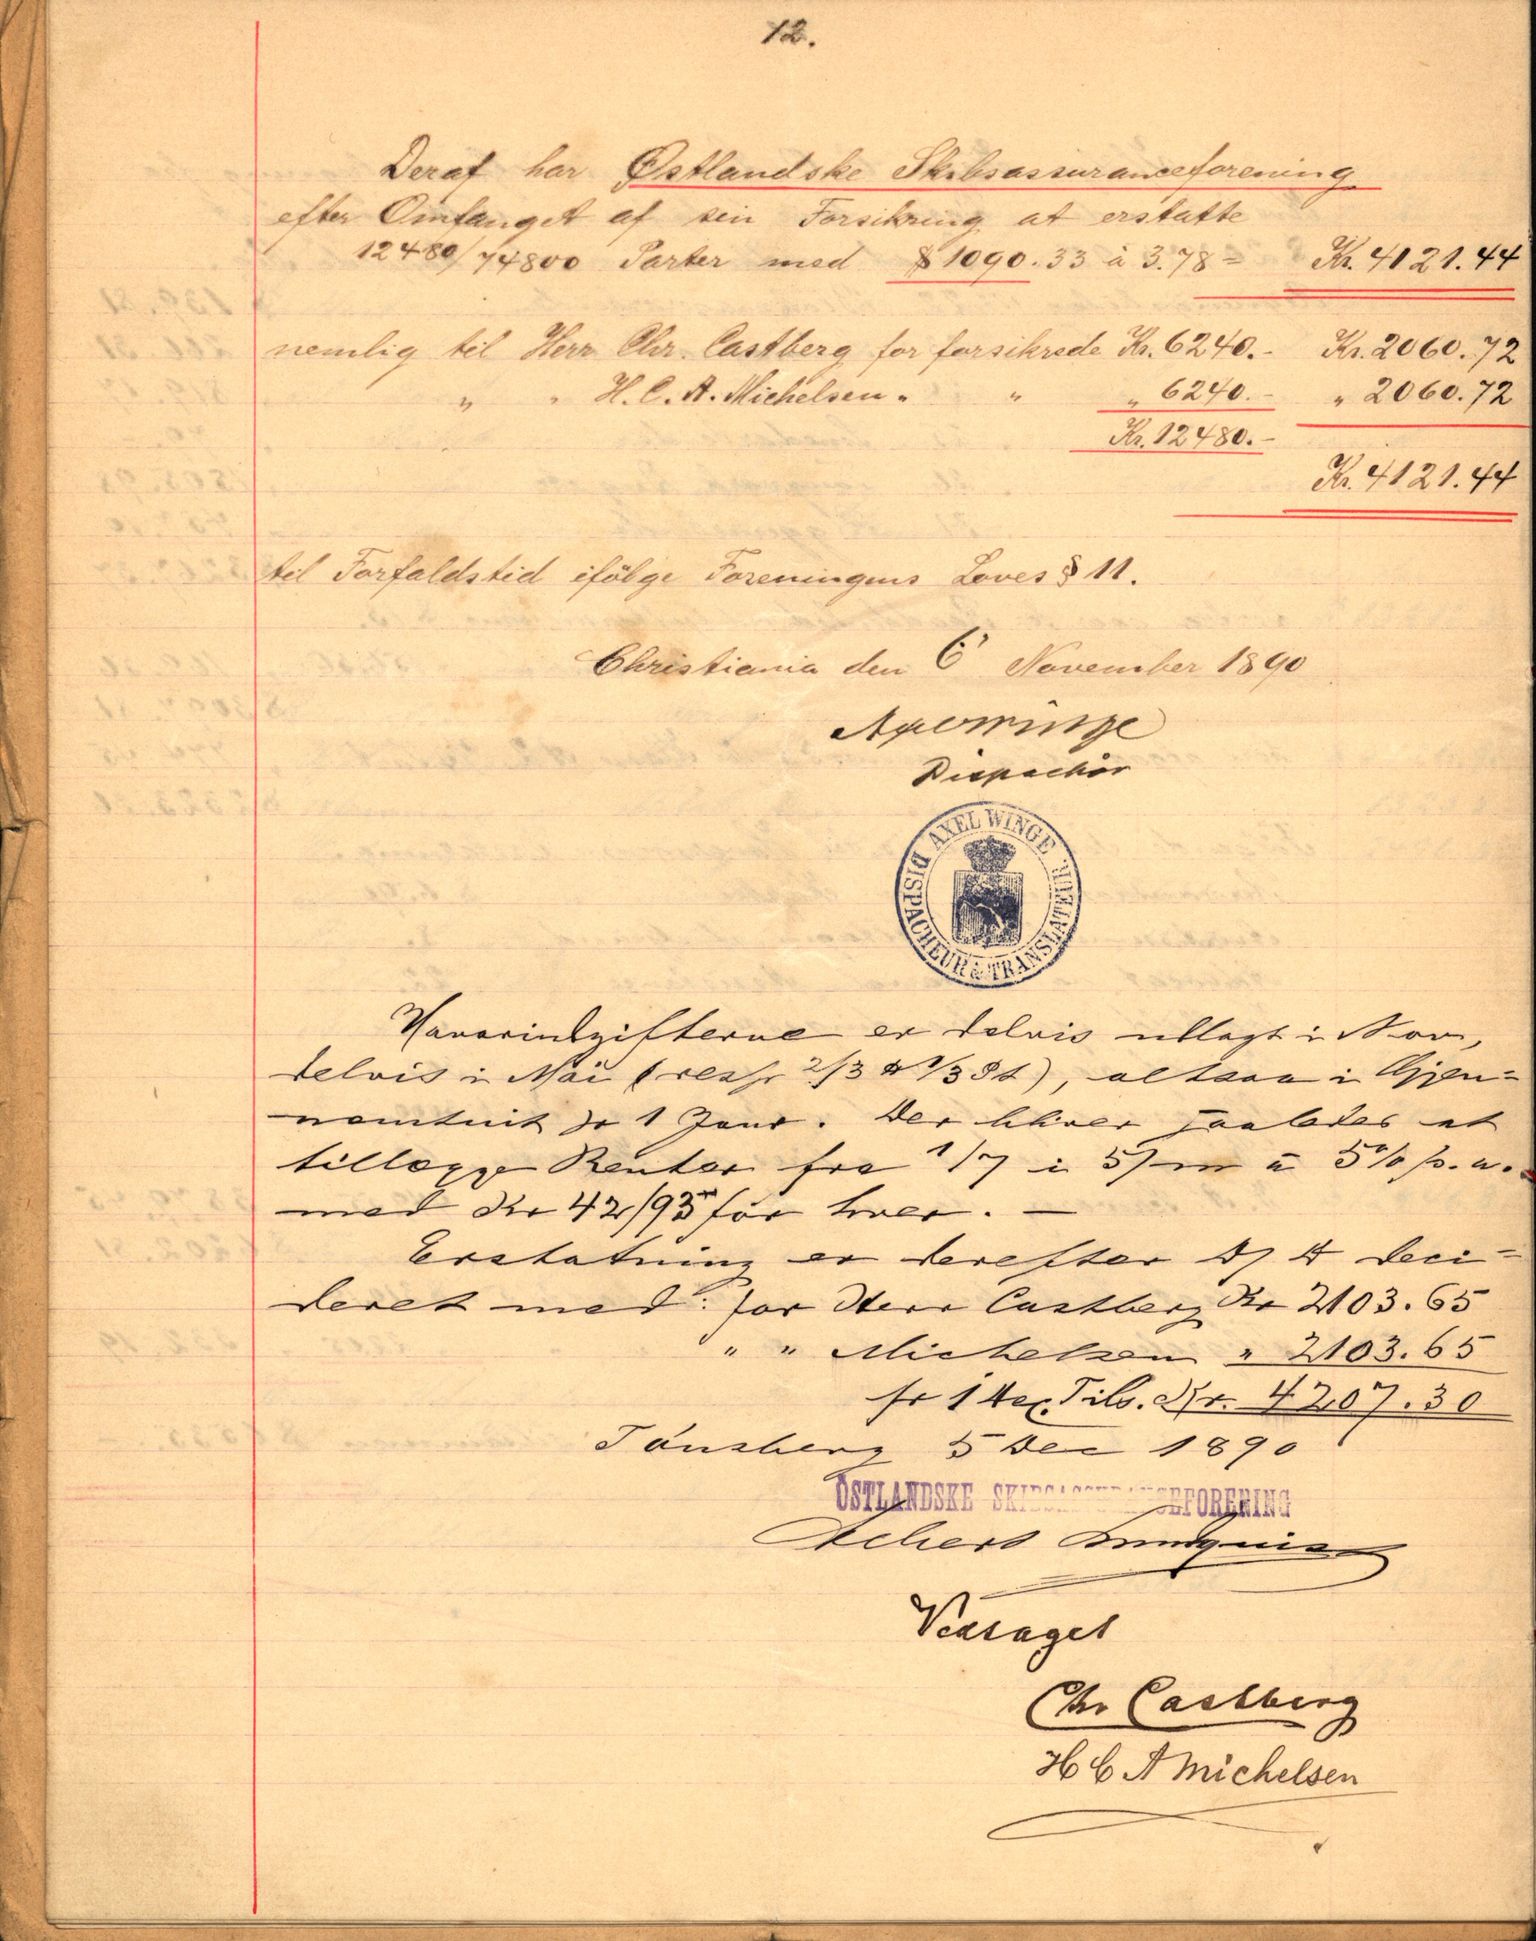 12.
Deraf har Østlandske Skibsassuranceforening
efter Omfanget af sin Forsikring at erstatte
12480/74800 Parter med $ 1090.33 à 3.78 = Kr. 4121.44
nemlig til Herr Chr. Castberg for forsikrede Kr. 6240.- Kr. 2060.72
" " H. C. A. Michelsen " " " 6240.- " 2060.72
Kr. 12480.-
Kr. 4121.44
til Forfaldstid ifölge Foreningens Loves § 11.
Christiania den 6' November 1890
Axel Winge
Dispachör
AXEL WINGE DISPACHEUR & TRANSLATEUR
Havariudgifterne er delvis udlagt i Nov,
delvis i Mai (resp 2/3 & 1/3 ), altsaa i Gjen=
nemsnit pr 1 . Der bliver saaledes at
tillægge Renter fra 1/7 i 5/m à 5% p. a.
med Kr 42/93 for hver. —
Erstatning er derefter deci=
deret med: for Herr Castberg Kr 2103.65
" " Michelsen " 2103.65
pr 1 Tils. Kr. 4207.30
Tönsberg 5 Dec 1890
ÖSTLANDSKE SKIBSASSURANCEFORENING
Vedtaget
Chr Castberg
H C A Michelsen